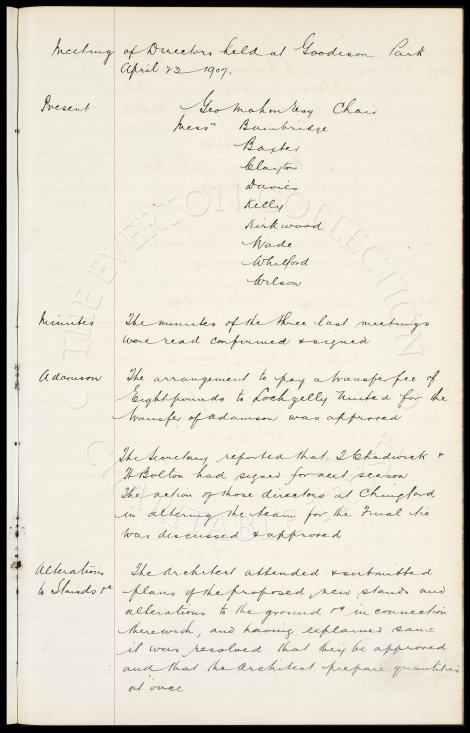 Meeting of Directors held at Goodison Park
April 23 1907.
Present Geo Mahon Esq Chair
Messrs Bainbridge
Baxter
Clayton
Davies
Kelly
Kirkwood
Wade
Whitford
Wilson
Minutes The minutes of the three last meetings
were read confirmed & signed
Adamson The arrangement to pay a transfer fee of
Eight pounds to Lochgelly United for the
transfer of Adamson was approved
The Secretary reported that Chadwick &
H Bolton had signed for next season
The action of those directors at Chingford
in altering the team for the Final tie
was discussed & approved
Alterations The Architect attended & submitted
to Stands &c plans of the proposed new stands and
alterations to the ground &c in connection
therewith, and having explained same
it was resolved that they be approved
and that the Architect prepare quantities
at once
THE EVERTON COLLECTION